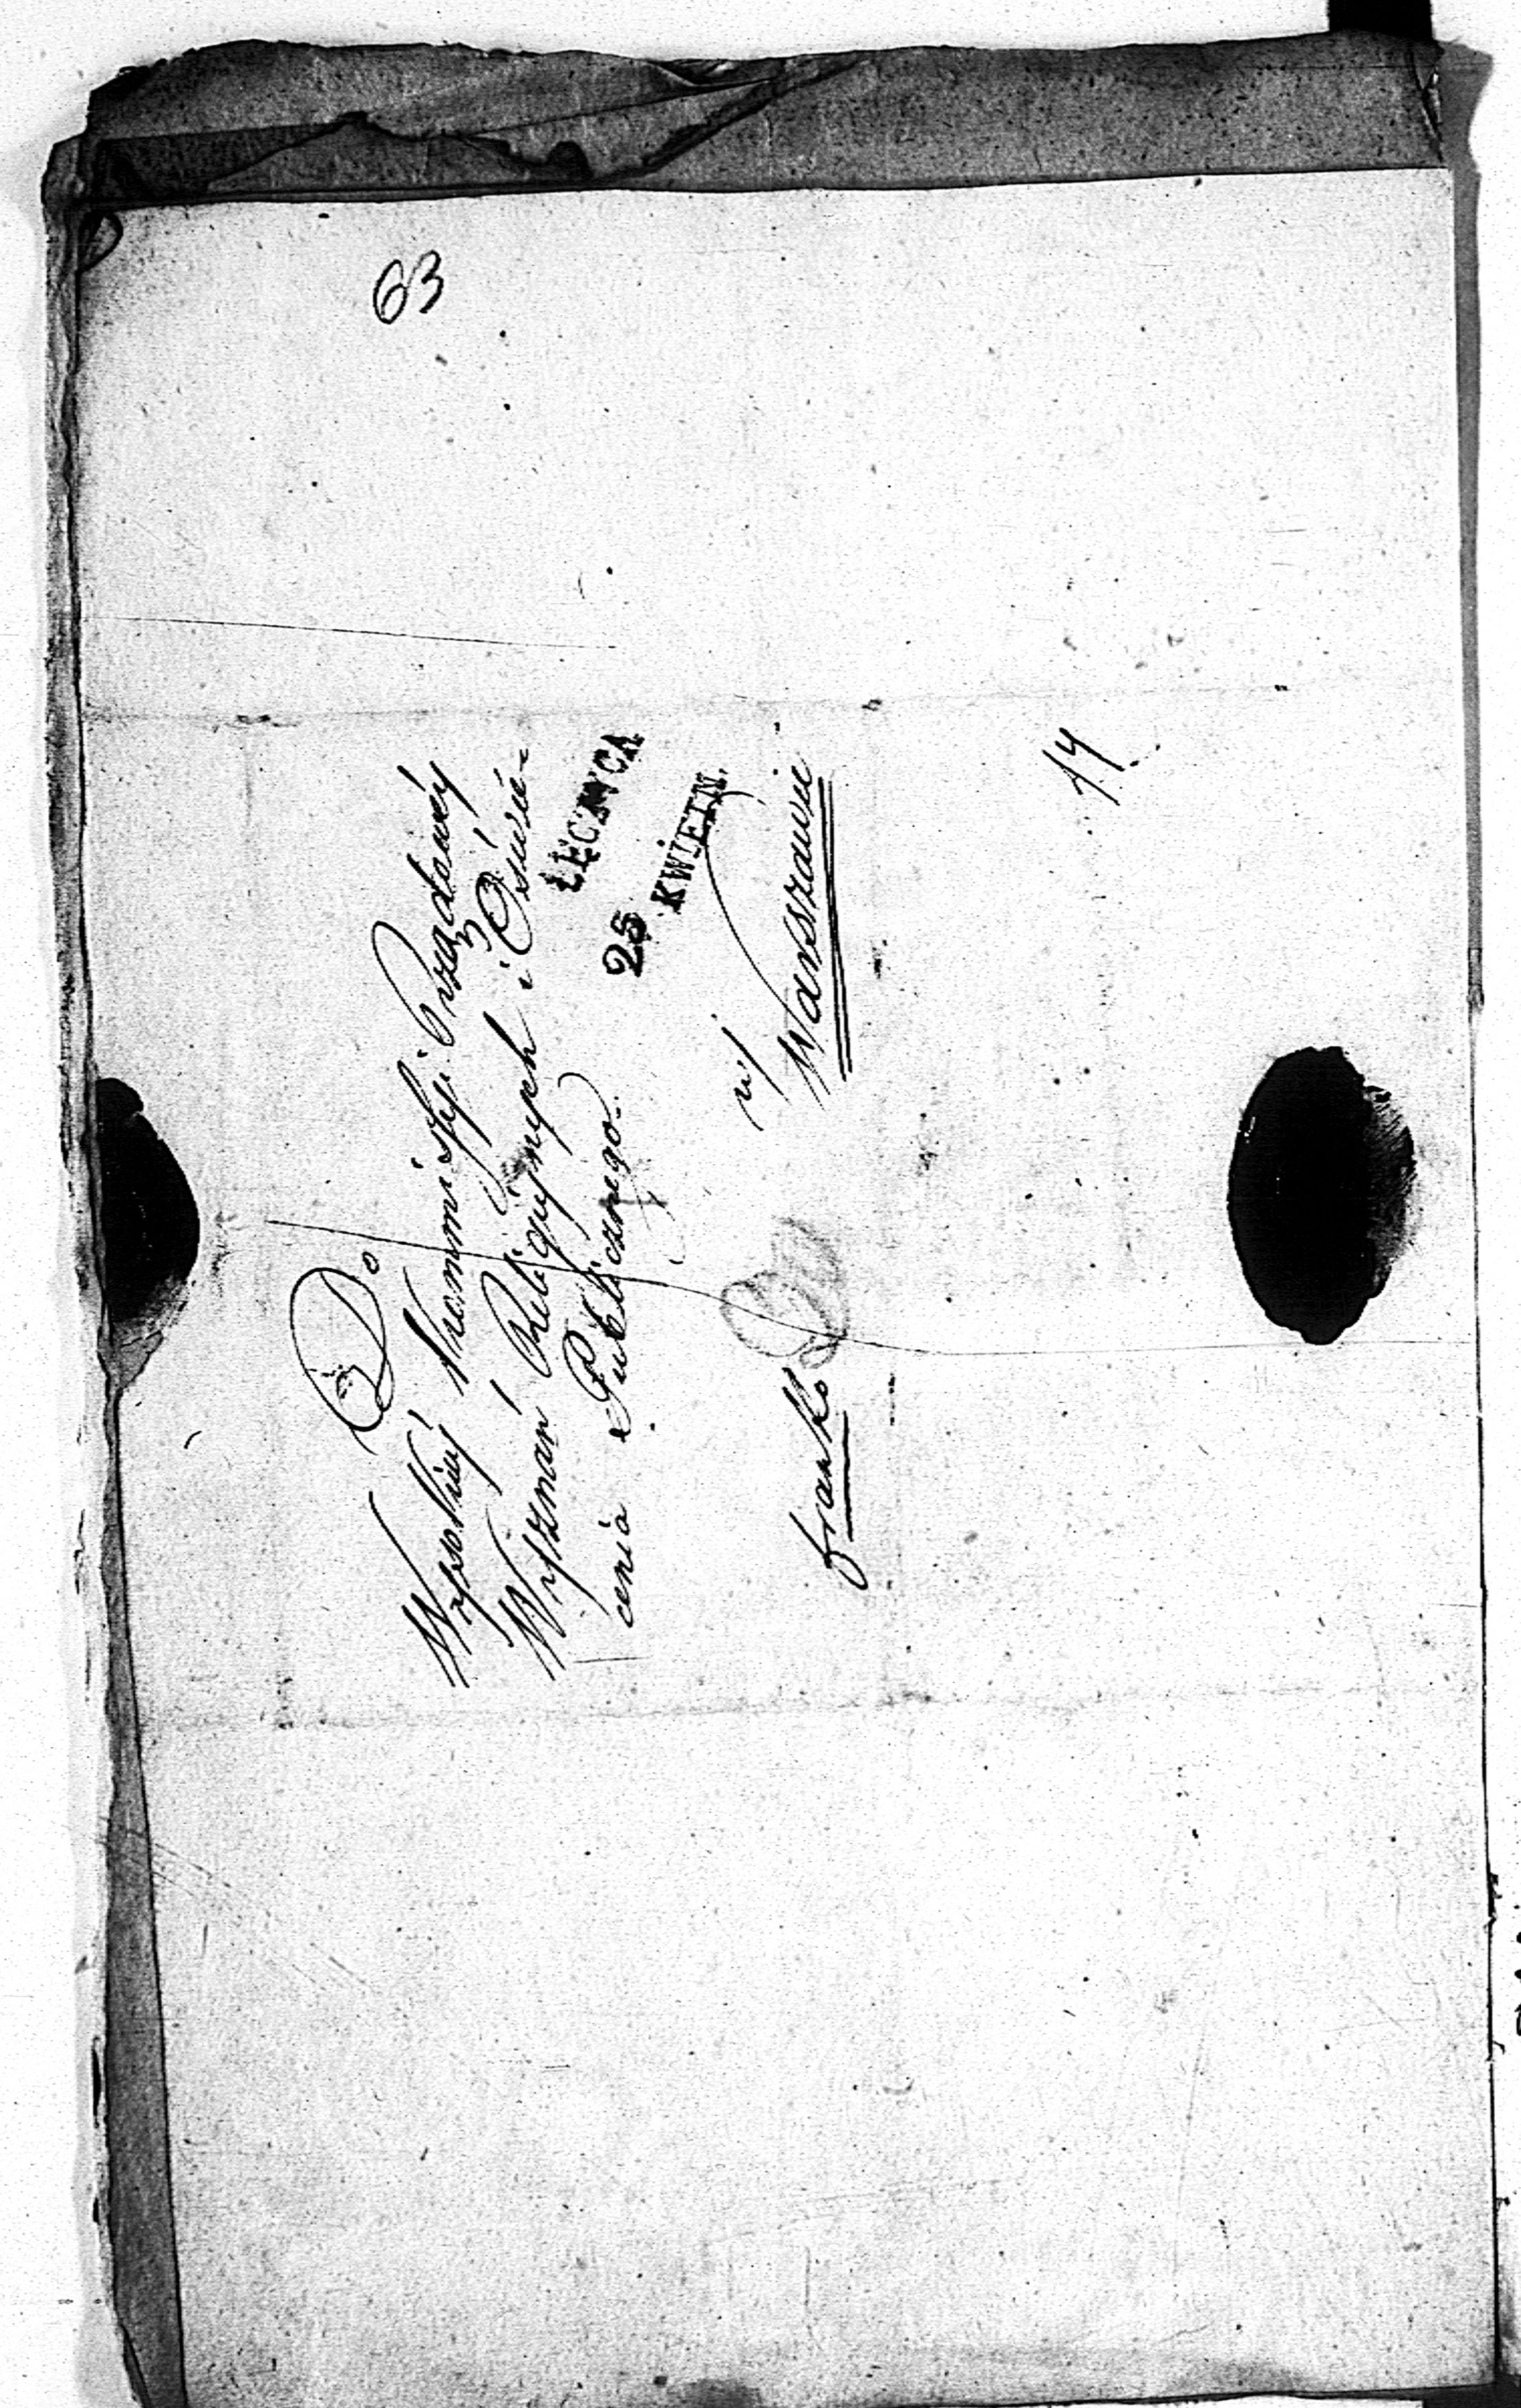 63
Do
Wysokiey Kommissyi Rządowéy
Wyznań Religiynych i Oświé-
cenia Publicznego.
ŁĘCZYCA
25 KWIETN.
w/
Warszawie
franko
14